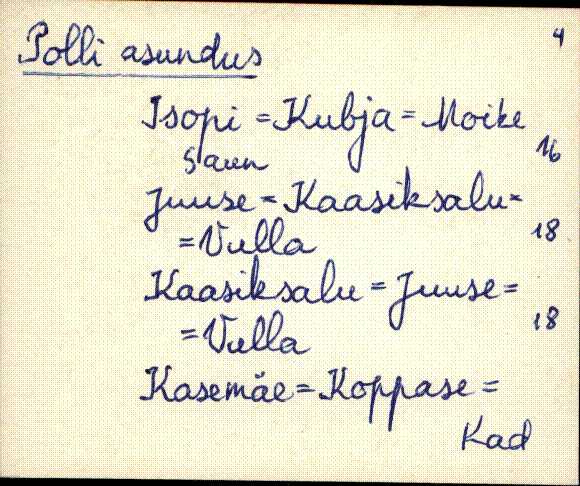 Polli asundus 4
Isopi = Kubja = Moike
saun 16
Juuse = Kaasiksalu =
= Vulla 18
Kaasiksalu = Juuse =
= Vulla 18
Kasemäe = Koppase =
Kad